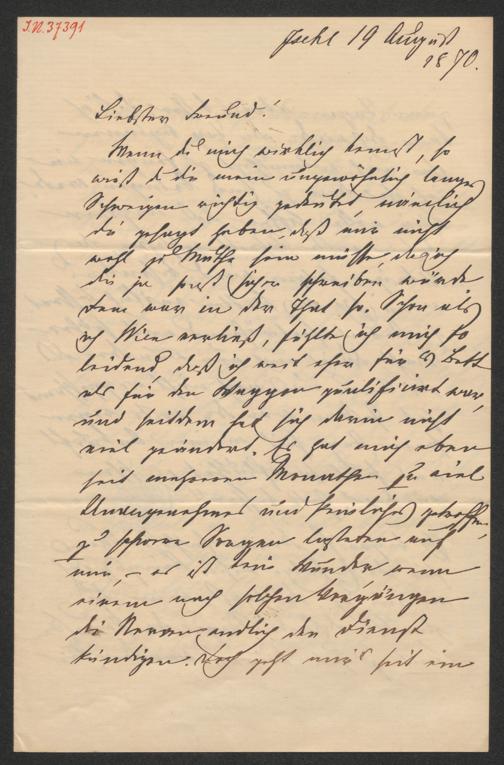 I.N. 37391
Ischl 19 August
1870.
Liebster Freund!
Wenn du mich wirklich kennst, so
wirst du dir mein ungewöhnlich langes
Schweigen richtig gedeutet, nämlich
dir gesagt haben, daß mir nicht
wohl zu Muthe sein müsse, da ich
dir ja sonst schon schreiben würde
Dem war in der That so. Schon als
ich Wien verließ, fühlte ich mich so
leidend, daß ich weit eher für's Bett
als für den Waggon qualifizirt war,
und seitdem hat sich darin nicht
viel geändert. Es hat mich eben
seit mehreren Monathen zu viel
Unangenehmes und Peinliches getroffen,
zu schwere Sorgen lasteten auf
mir, – es ist kein Wunder wenn
einem nach solchen Vorgängen
die Nerven endlich den Dienst
kündigen. Doch geht mir's seit ein